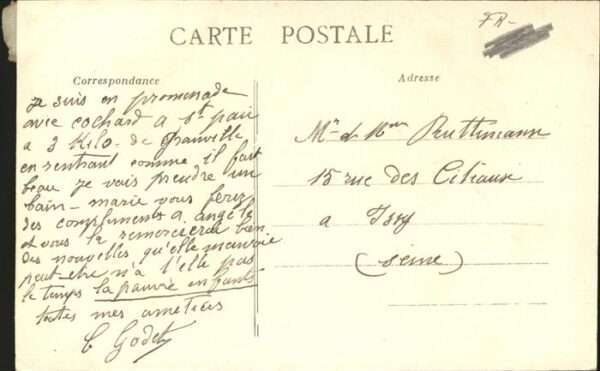 FR-
CARTE POSTALE
Correspondance
Adresse
je suis en promenade
avec cochard a St pair
a 3 Kilo- de Granville
en rentrant comme il fait
beau je vais prendre un
bain-marie vous ferez
des compliments a angèle
et vous la remercierai bien
des nouvelles qu'elle m'envoie
peut-etre n'a t'elle pas
le temps la pauvre enfants
toutes mes ametiers
C Godet
Mr et Mme Ruthmann
15 rue des Citeaux
a Issy
(seine)